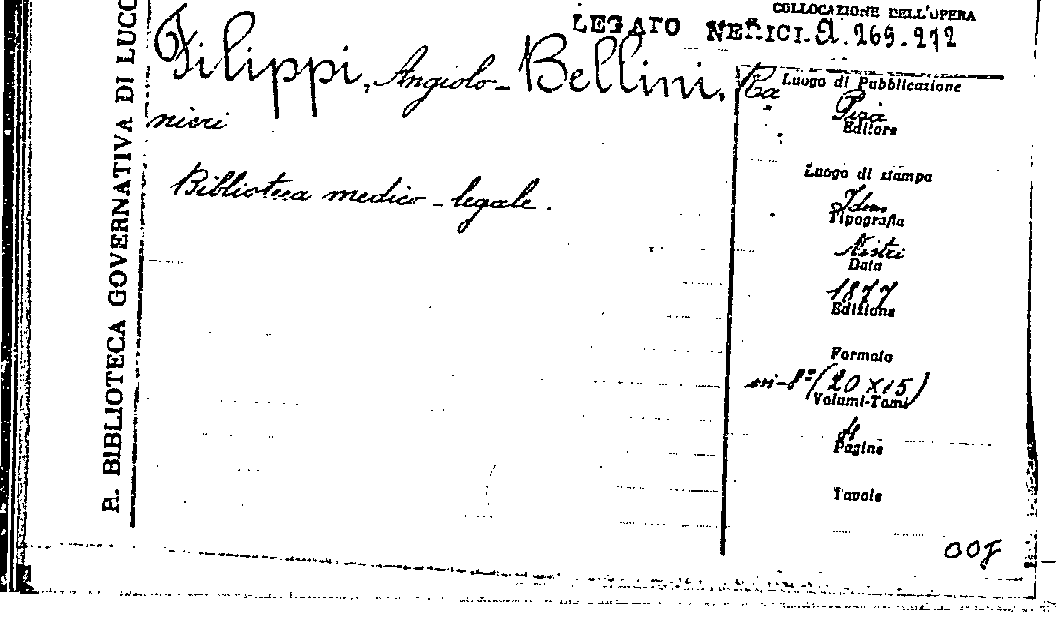 COLLOCAZIONE DELL'OPERA
LEGATO NERICI. A. 269.272
Filippi, Angiolo - Bellini, Ra
nieri
Biblioteca medico-legale.
R. BIBLIOTECA GOVERNATIVA DI LUCC
Luogo di Pubblicazione
Pisa
Editore
Luogo di stampa
Idem
Tipografia
Nistri
Data
1877
Edizione
Formato
in-8º (20 x 15)
Volumi-Tomi
4
Pagine
Tavole